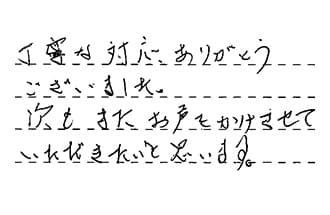 丁寧な対応、ありがとう
ございました。
次もまたお声をかけさせて
いただきたいと思います。